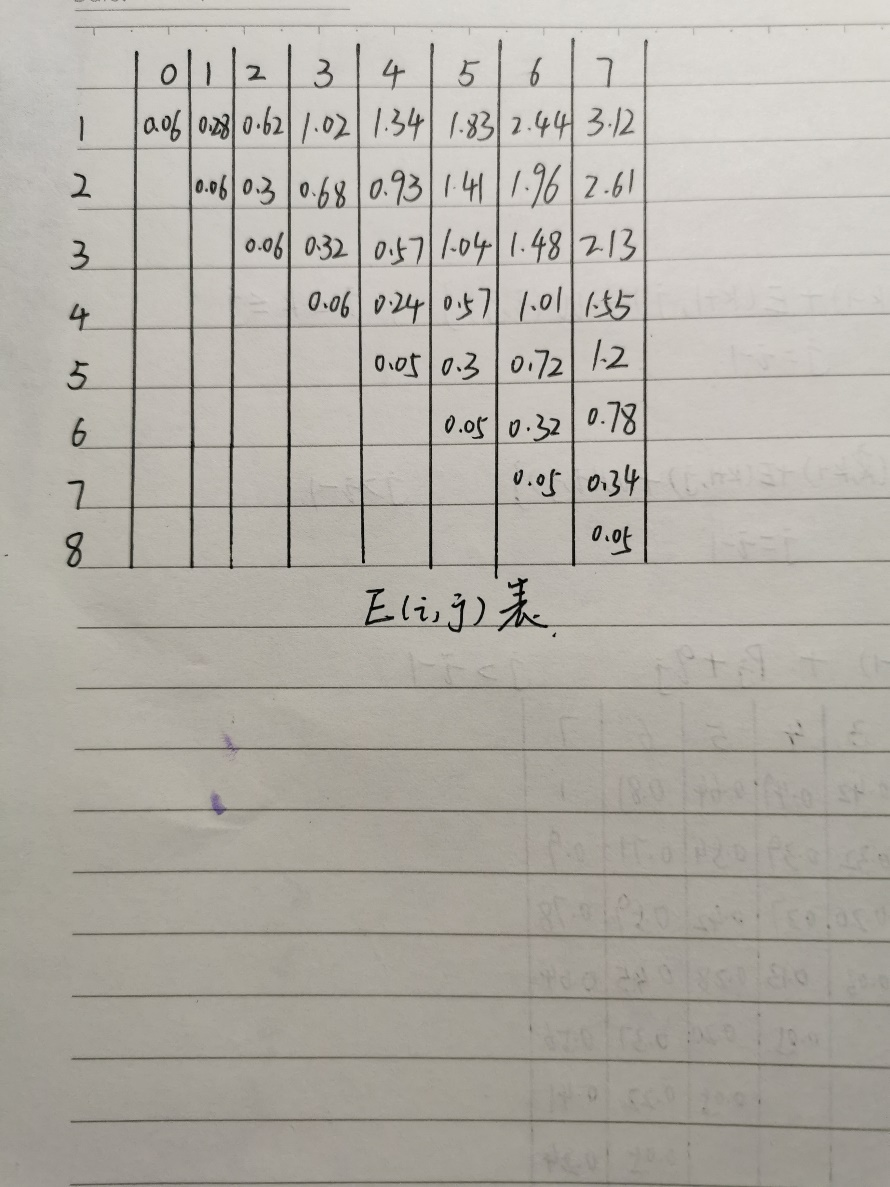 0 1 2 3 4 5 6 7
1 0.06 0.28 0.62 1.02 1.34 1.83 2.44 3.12
2 0.06 0.3 0.68 0.93 1.41 1.96 2.61
3 0.06 0.32 0.57 1.04 1.48 2.13
4 0.06 0.24 0.57 1.01 1.55
5 0.05 0.3 0.72 1.2
6 0.05 0.32 0.78
7 0.05 0.34
8 0.05
E(i,j)表.